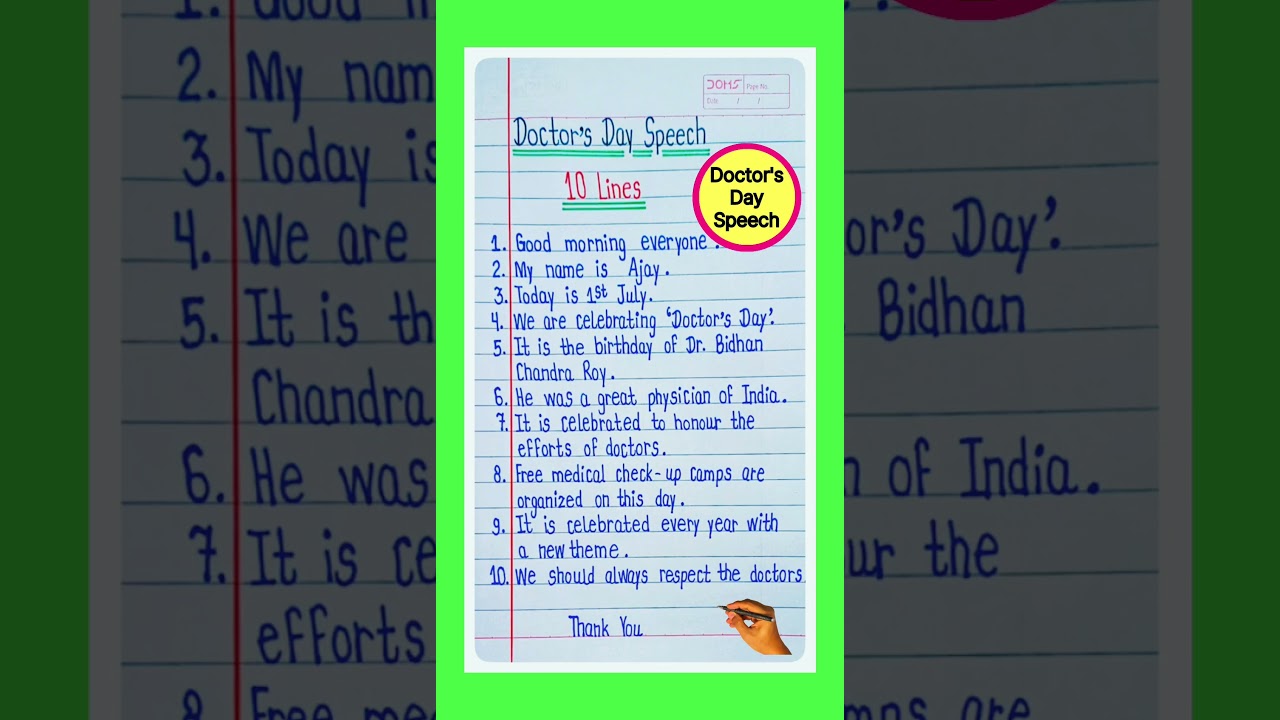 DOMS Page No.
Date / /
Doctor's Day Speech
10 Lines
Doctor's
Day
Speech
1. Good morning everyone.
2. My name is Ajay.
3. Today is 1st July.
4. We are celebrating 'Doctor's Day'.
5. It is the birthday of Dr. Bidhan
Chandra Roy.
6. He was a great physician of India.
7. It is celebrated to honour the
efforts of doctors.
8. Free medical check-up camps are
organized on this day.
9. It is celebrated every year with
a new theme.
10. We should always respect the doctors
Thank You
2. My nam
3. Today is
4. We are
or's Day'.
5. It is th
Bidhan
Chandra
6. He was
of India.
7. It is ce
ur the
efforts
are